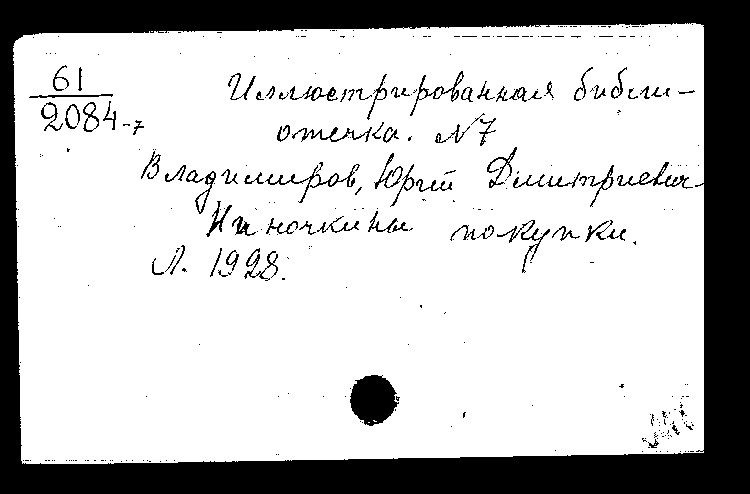 61
2084-7
Иллюстрированная библи-
отечка. N7
Владимиров, Юрий Дмитриевич
Ниночкины покупки.
Л. 1928.